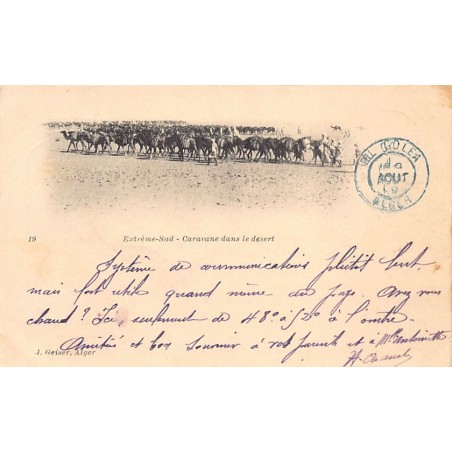 EL GOLEA
AOUT
ALGER
19
Extrême-Sud - Caravane dans le desert
Système de communications plûtôt lent,
mais fort utile quand même au pays. Avez vous
chaud? Ici, seulement de 48° à 52° à l'ombre.
Amitiés et bon souvenir à vos parents et à Mlle Antoinette
J. Geiser, Alger
H.